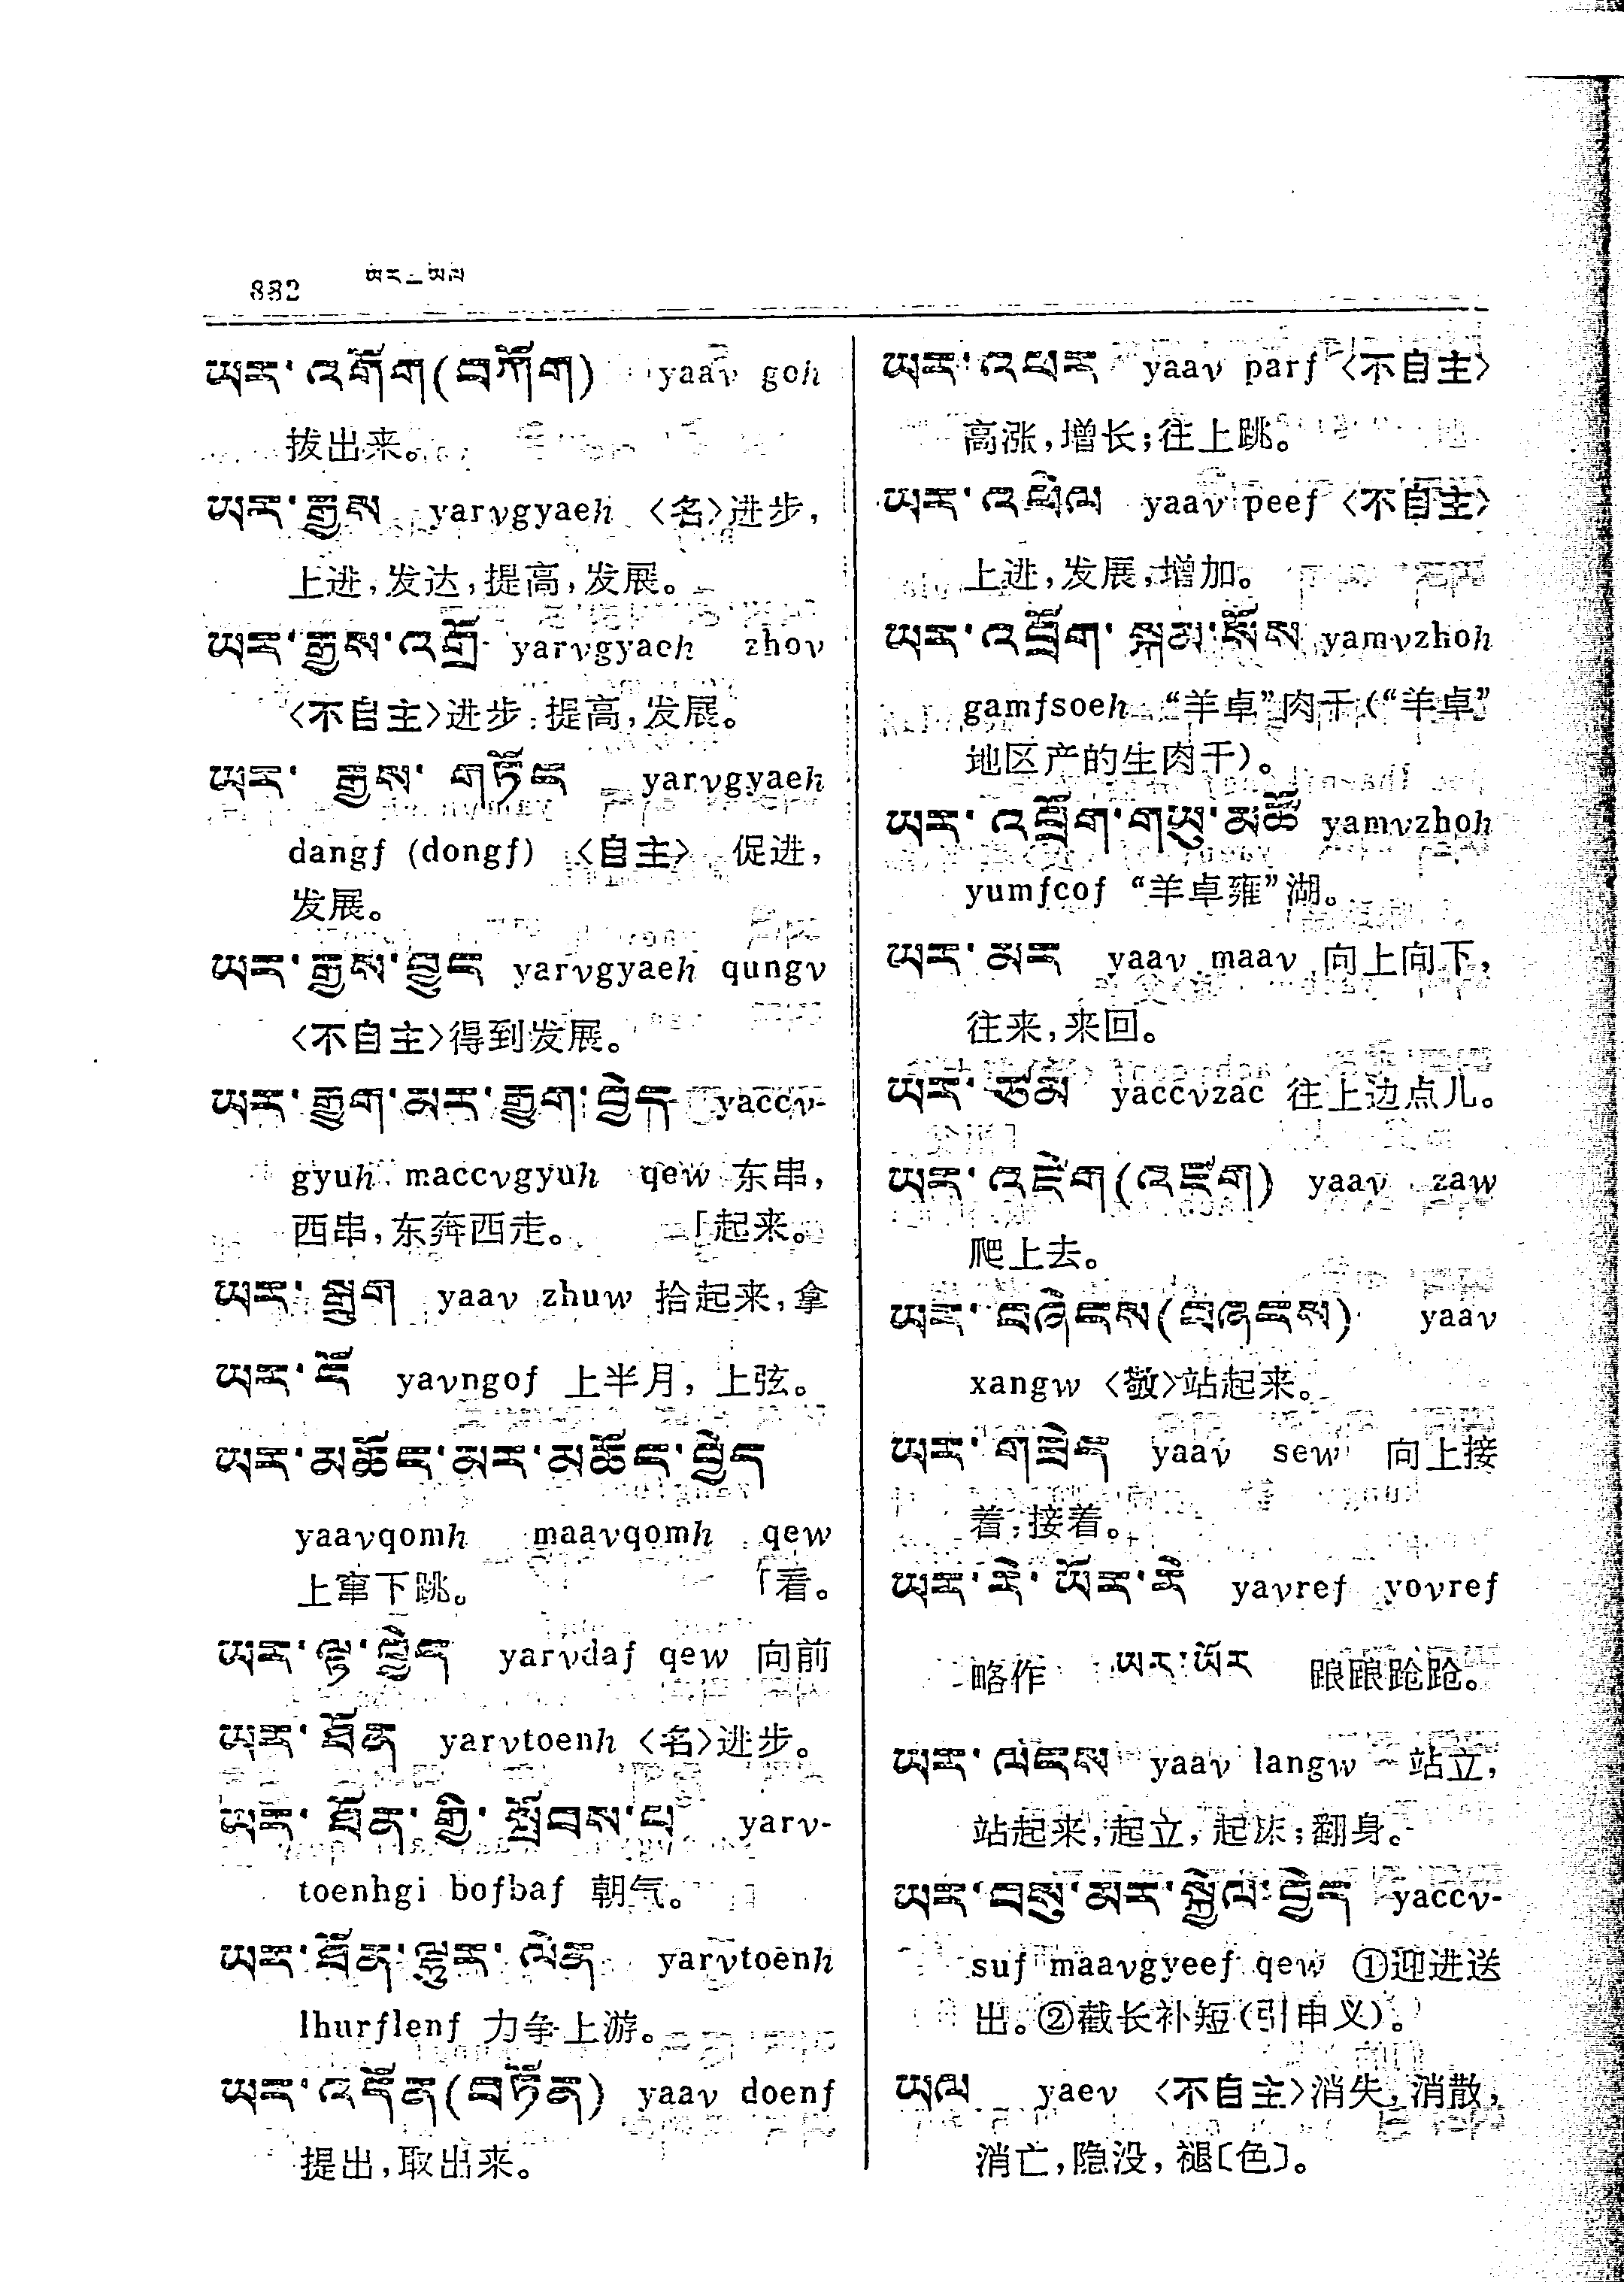 882 ཡར—ཡལ
ཡར་འགོག(བཀོག) yaav goh
拔出来。
ཡར་རྒྱས yarvgyaeh 〈名〉进步,
上进,发达,提高,发展。
ཡར་རྒྱས་འགྲོ yarvgyaeh zhov
〈不自主〉进步,提高,发展。
ཡར་ རྒྱས་ གཏོང yarvgyaeh
dangf (dongf) 〈自主〉 促进,
发展。
ཡར་རྒྱས་བྱུང yarvgyaeh qungv
〈不自主〉得到发展。
ཡར་རྒྱུག་མར་རྒྱུག་བྱེད yaccv-
gyuh maccvgyuh qew 东串,
西串,东奔西走。 「起来。
ཡར་སྒྲུག yaav zhuw 拾起来,拿
ཡར་ངོ yavngof 上半月, 上弦。
ཡར་མཆོང་མར་མཆོང་བྱེད
yaavqomh maavqomh qew
上窜下跳。 「看。
ཡར་ལྟ་བྱེད yarvdaf qew 向前
ཡར་ཐོན yarvtoenh 〈名〉进步。
ཡར་ཐོན་གྱི་སྤོབས་པ yarv-
toenhgi bofbaf 朝气。
ཡར་ཐོན་ལྷུར་ལེན yarvtoenh
lhurflenf 力争上游。
ཡར་འདོན(བཏོན) yaav doenf
提出,取出来。
ཡར་འཕར yaav parf 〈不自主〉
高涨,增长;往上跳。
ཡར་འཕེལ yaav peef 〈不自主〉
上进,发展,增加。
ཡར་འབྲོག་སྐམ་སོས yamvzhoh
gamfsoeh “羊卓”肉干(“羊卓”
地区产的生肉干)。
ཡར་འབྲོག་གཡུ་མཚོ yamvzhoh
yumfcof “羊卓雍”湖。
ཡར་མར yaav maav 向上向下,
往来,来回。
ཡར་ཙམ yaccvzac 往上边点儿。
ཡར་འཛེག(འཛག) yaav zaw
爬上去。
ཡར་བཞེངས(བཞངས) yaav
xangw 〈敬〉站起来。
ཡར་གཟེད yaav sew 向上接
着;接着。
ཡར་རེ་ཡོར་རེ yavref yovref
略作 ཡར་ཡོར 踉踉跄跄。
ཡར་ལངས yaav langw 站立,
站起来,起立,起床;翻身。
ཡར་བསུ་མར་སྐྱེལ་བྱེད yaccv-
suf maavgyeef qew ①迎进送
出。②截长补短(引申义)。
ཡལ yaev 〈不自主〉消失,消散,
消亡,隐没,褪〔色〕。